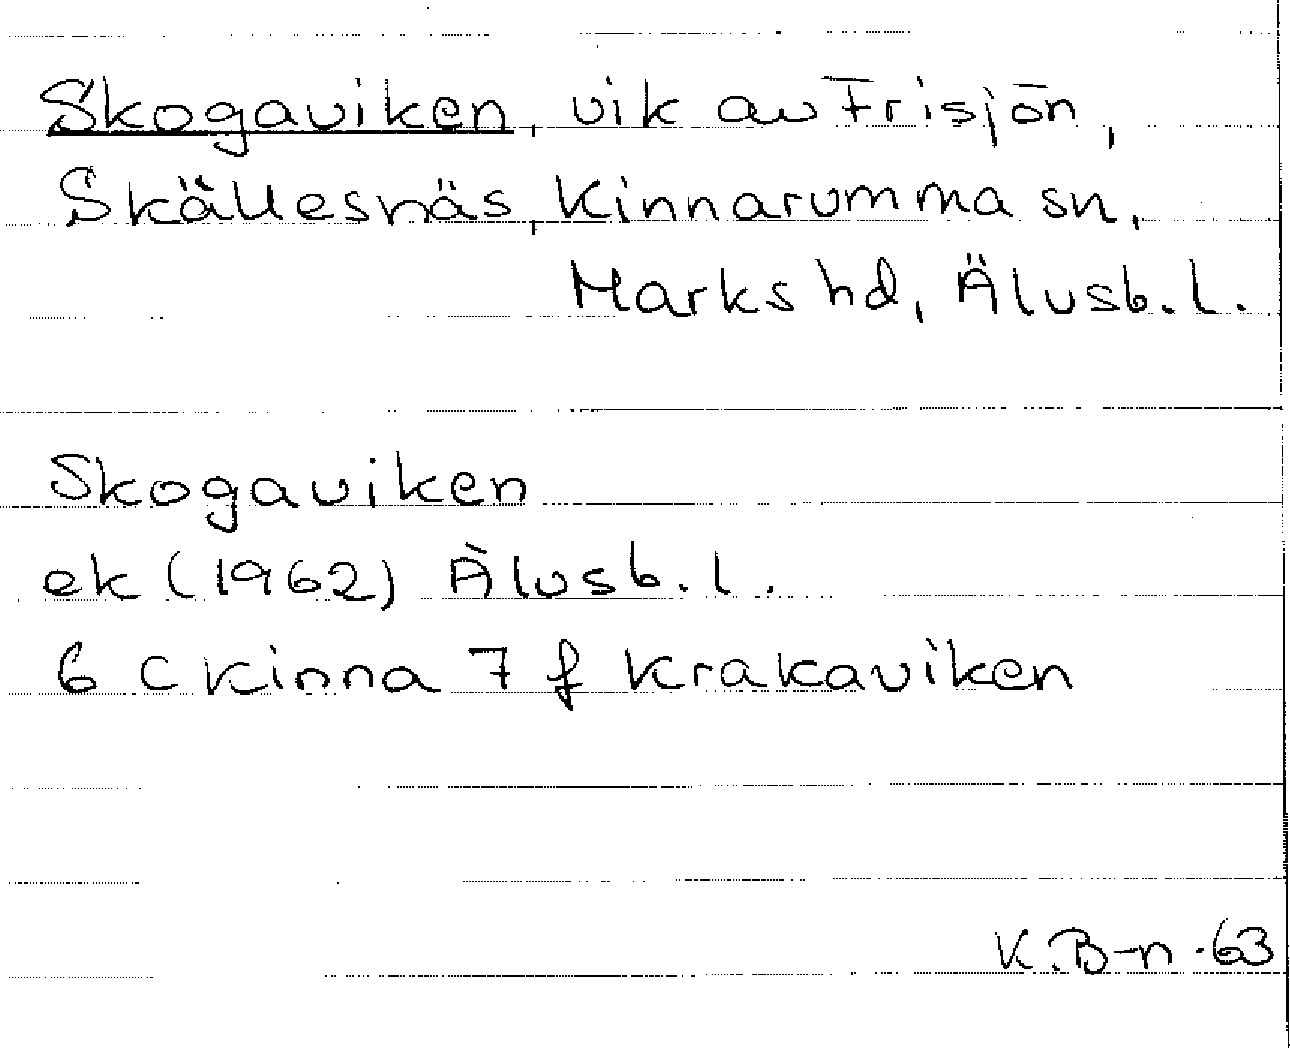 Skogaviken, vik av Frisjön,
Skällesnäs, Kinnarumma sn,
Marks hd, Älvsb. l.
Skogaviken
ek (1962) Älvsb. l.
6 C Kinna 7 f Krakaviken
K. B-n ·63